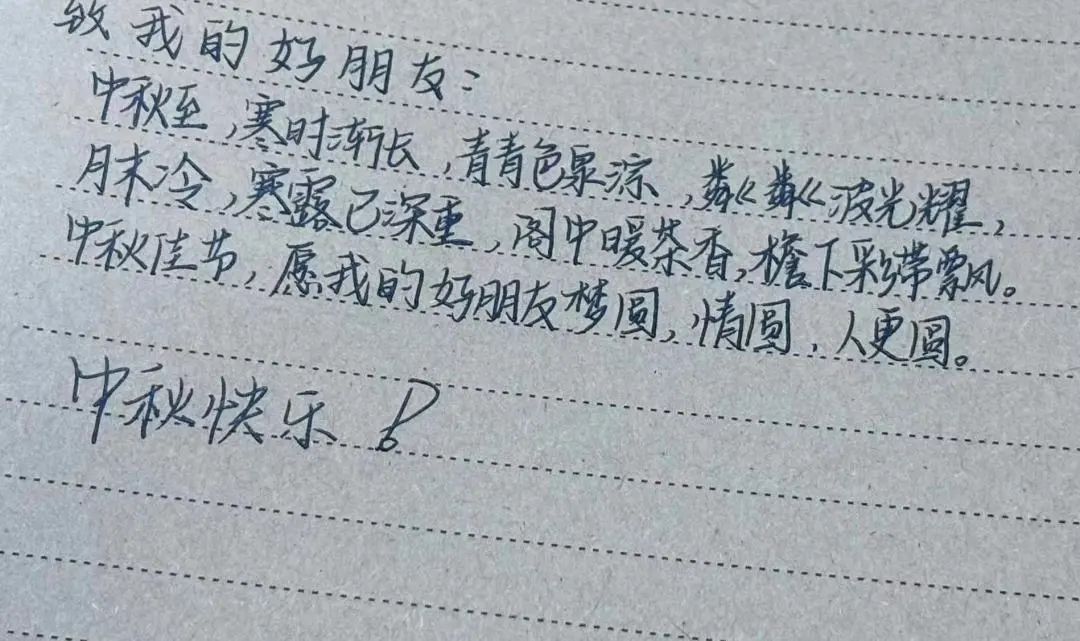 致我的好朋友：
中秋至，寒时渐长，青青色泉淙，粼粼波光耀，
月末冷，寒露已深重，阁中暖茶香，檐下彩带飘。
中秋佳节，愿我的好朋友梦圆，情圆，人更圆。
中秋快乐！